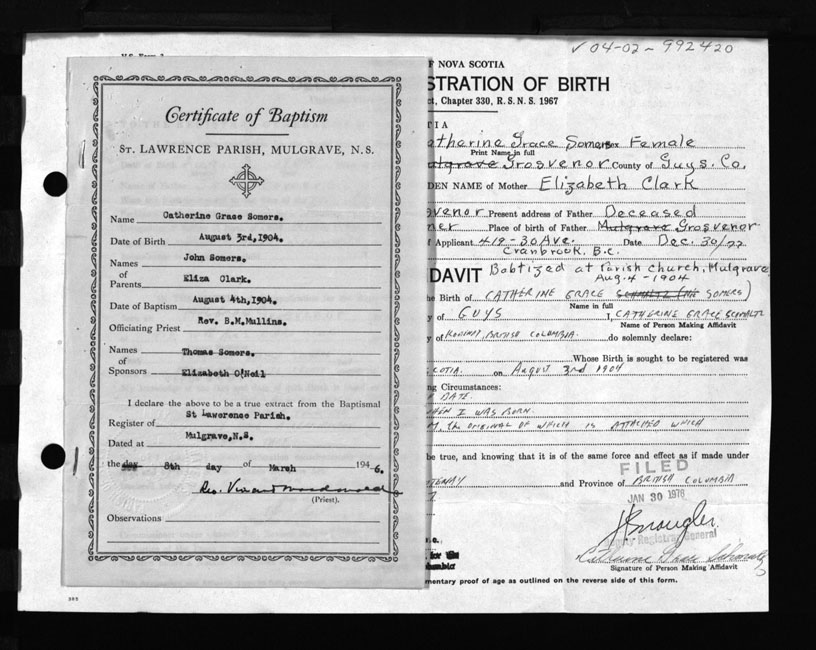 ✓ 04-02-992420
Certificate of Baptism
ST. LAWRENCE PARISH, MULGRAVE, N.S.
Name Catherine Grace Somers.
Date of Birth August 3rd, 1904.
Names John Somers.
of
Parents Eliza Clark.
Date of Baptism August 4th, 1904.
Officiating Priest Rev. B.M. Mullins.
Names Thomas Somers.
of
Sponsors Elizabeth O'Neil
I declare the above to be a true extract from the Baptismal
Register of St Lawerence Parish.
Dated at Mulgrave, N.S.
the day 8th day of March 1946.
Rev.
(Priest).
Observations
F NOVA SCOTIA
STRATION OF BIRTH
ct, Chapter 330, R.S.N.S. 1967
TIA
atherine Grace Somers Sex Female
Print Name in full
Mulgrave Grosvenor County of Guys. Co.
DEN NAME of Mother Elizabeth Clark
venor Present address of Father Deceased
ner Place of birth of Father Mulgrave Grosvenor
f Applicant 419-30 Ave. Date Dec. 30/77
Cranbrook, B.C.
DAVIT Babtized at Parish Church, Mulgrave
Aug. 4 - 1904
he Birth of CATHERINE GRACE SCHMALTZ (NEE SOMERS)
Name in full
y of GUYS I, CATHERINE GRACE SCHMALTZ
Name of Person Making Affidavit
y of BRITISH COLUMBIA do solemnly declare:
Whose Birth is sought to be registered was
SCOTIA. on August 3rd 1904
ng Circumstances:
DATE.
WHEN I WAS BORN.
M, the ORIGINAL OF WHICH IS ATTACHED WHICH
be true, and knowing that it is of the same force and effect as if made under
OTENAY and Province of BRITISH COLUMBIA
FILED
JAN 30 1978
Deputy Registrar General
Catherine Grace Schmaltz
Signature of Person Making Affidavit
mentary proof of age as outlined on the reverse side of this form.